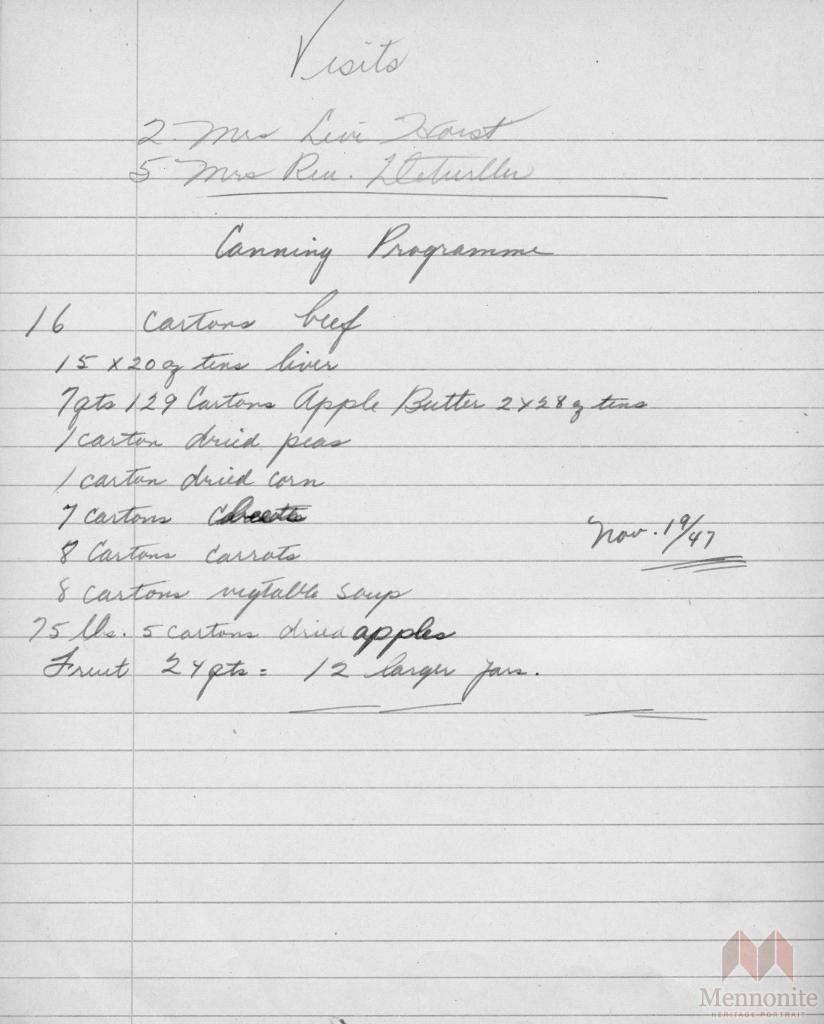 Visits
2 Mrs Levi Horst
5 Mrs Rev.
Canning Programme
16 cartons beef
15 x 20 oz tins liver
7 qts 129 Cartons Apple Butter 2 x 28 oz tins
1 carton dried peas
1 carton dried corn
7 cartons beets
Nov. 19/47
8 Cartons carrots
8 cartons vegtable soup
75 lbs. 5 cartons dried apples
Fruit 24 qts = 12 larger jars.
Mennonite
HERITAGE PORTRAIT